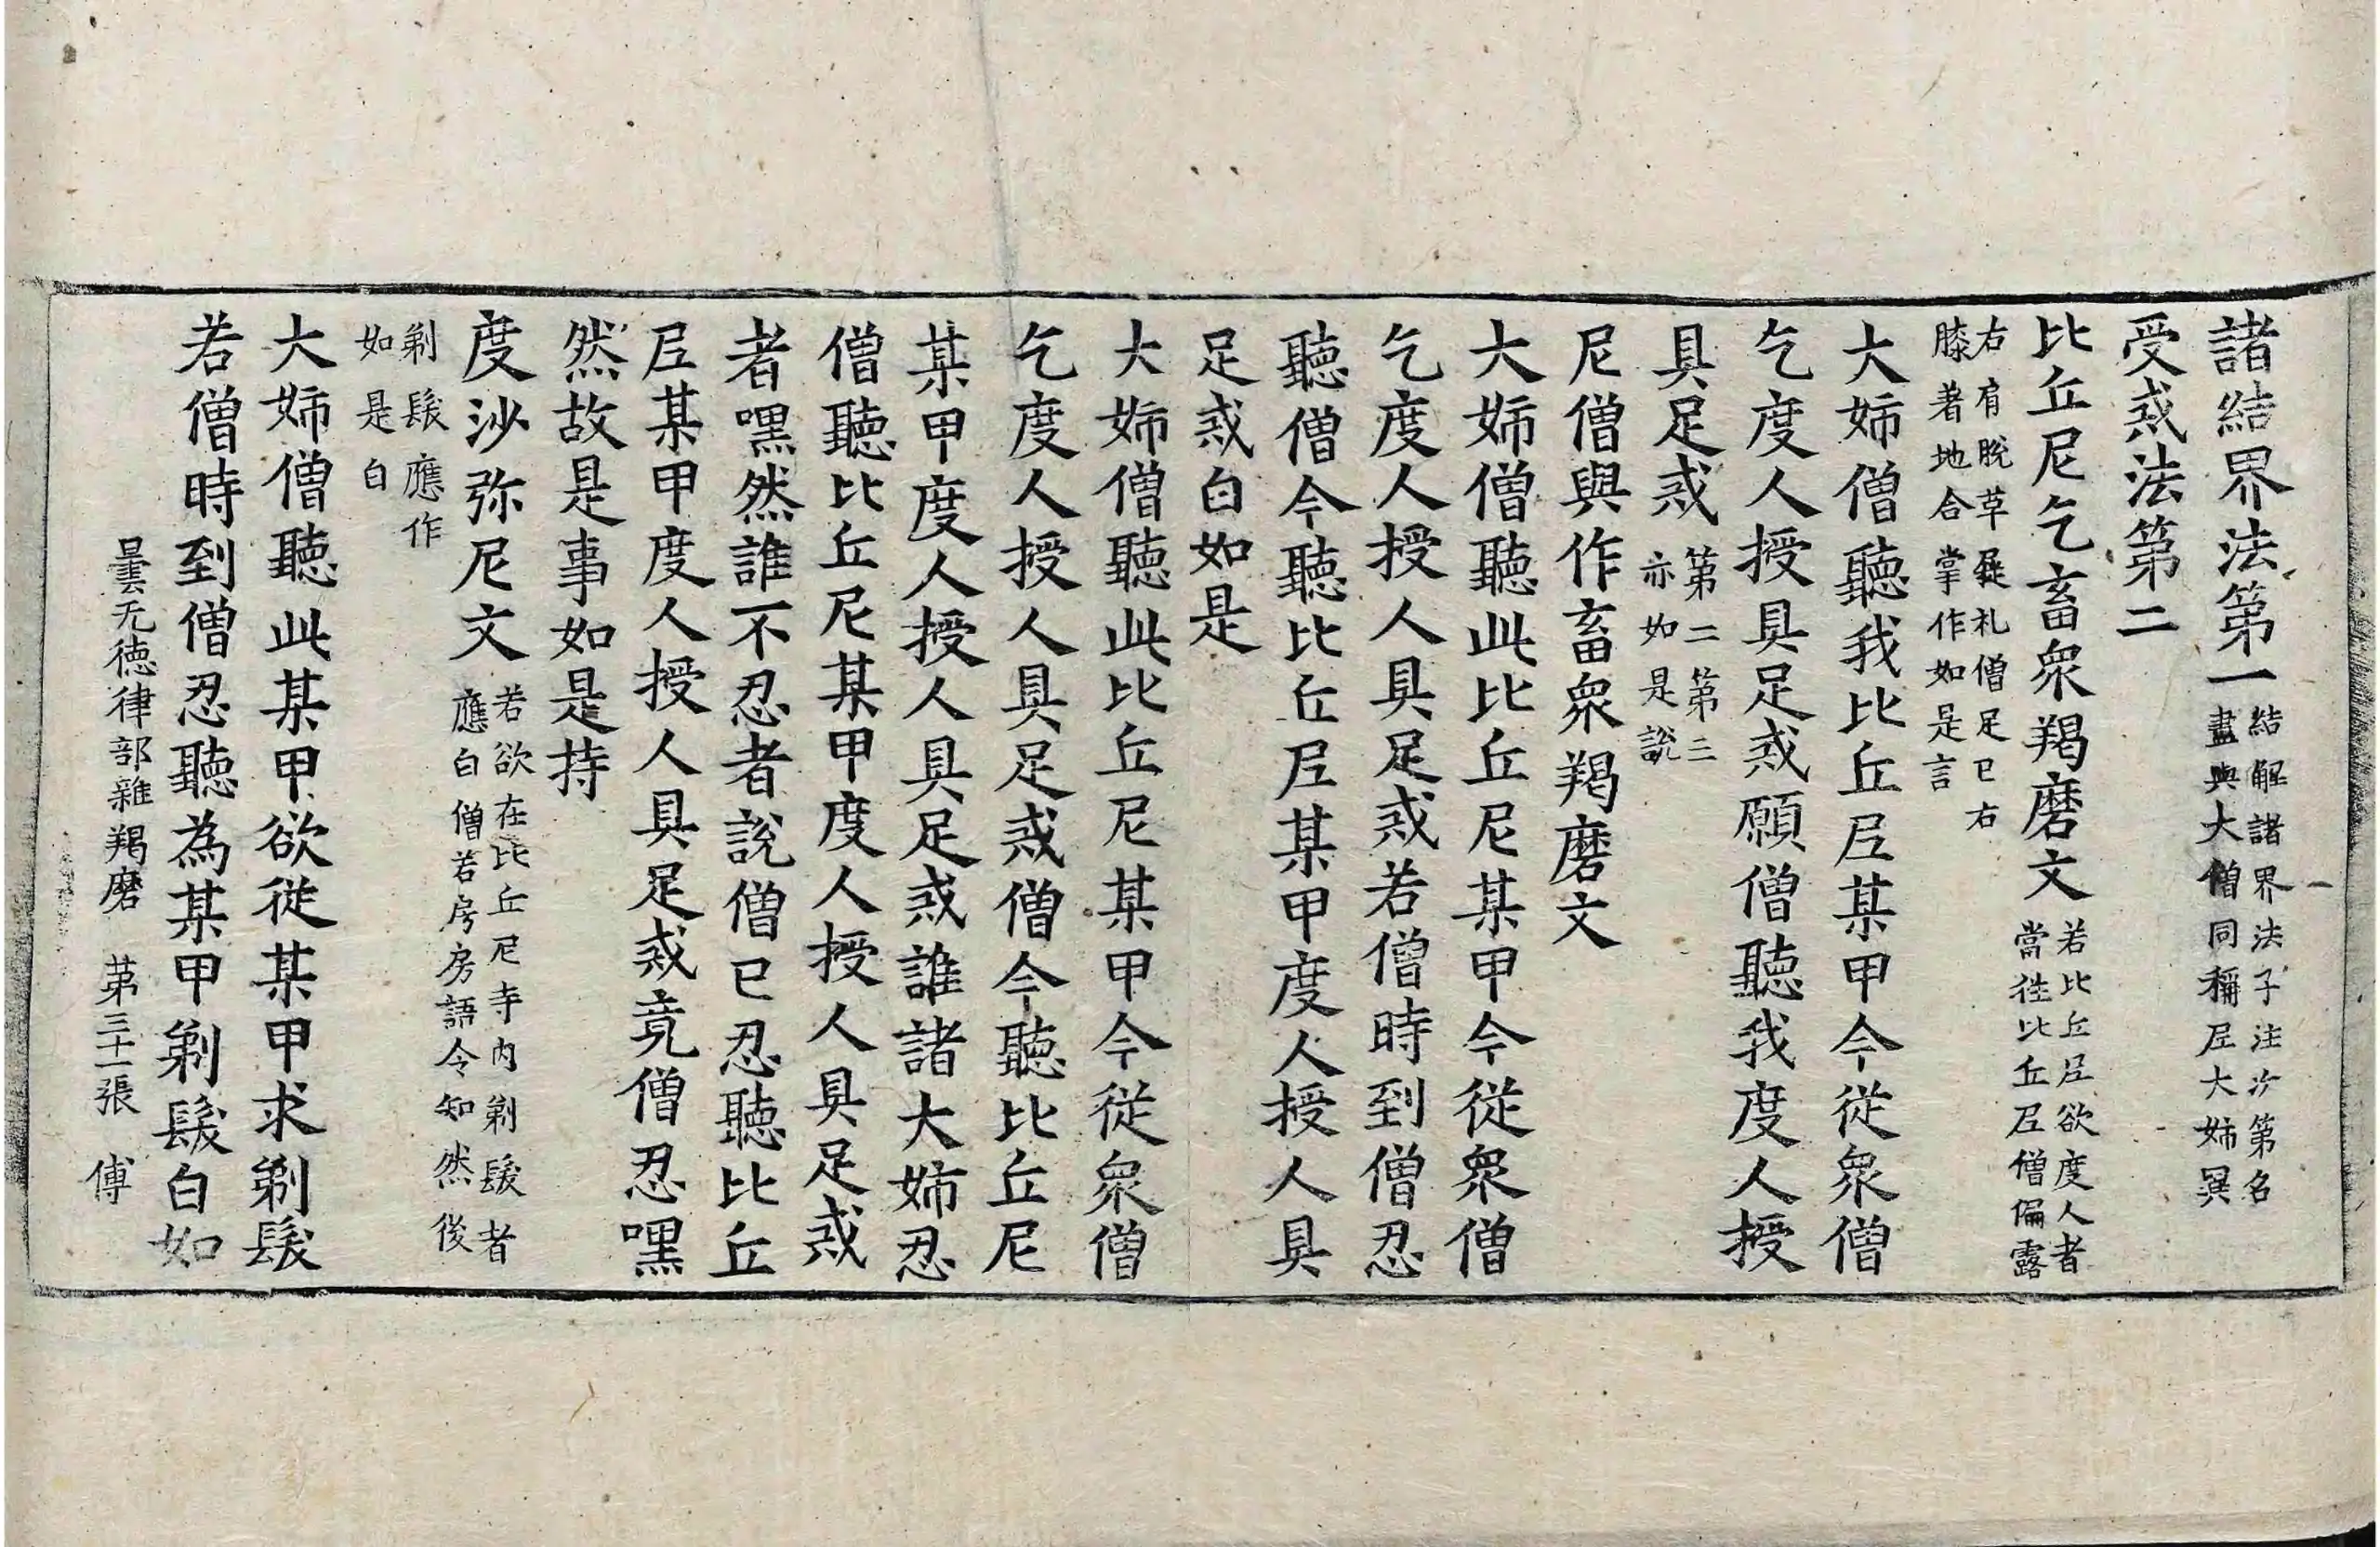 諸結界法第一結解諸界法子注次第名
盡與大僧同稱尼大姉異
受戒法第二
比丘尼乞畜衆羯磨文若比丘尼欲度人者
當往比丘尼僧偏露
右肩脫草屣礼僧足已右
膝著地合掌作如是言
大姉僧聽我比丘尼某甲今從衆僧
乞度人授具足戒願僧聽我度人授
具足戒第二第三
亦如是說
尼僧與作畜衆羯磨文
大姉僧聽此比丘尼某甲今從衆僧
乞度人授人具足戒若僧時到僧忍
聽僧今聽比丘尼某甲度人授人具
足戒白如是
大姉僧聽此比丘尼某甲今從衆僧
乞度人授人具足戒僧今聽比丘尼
某甲度人授人具足戒誰諸大姉忍
僧聽比丘尼某甲度人授人具足戒
者嘿然誰不忍者說僧已忍聽比丘
尼某甲度人授人具足戒竟僧忍嘿
然故是事如是持
度沙弥尼文若欲在比丘尼寺内剃髮者
應白僧若房房語令知然後
剃髮應作
如是白
大姉僧聽此某甲欲從某甲求剃髮
若僧時到僧忍聽為某甲剃髮白如
曇无徳律部雜羯磨 第三十一張 傅